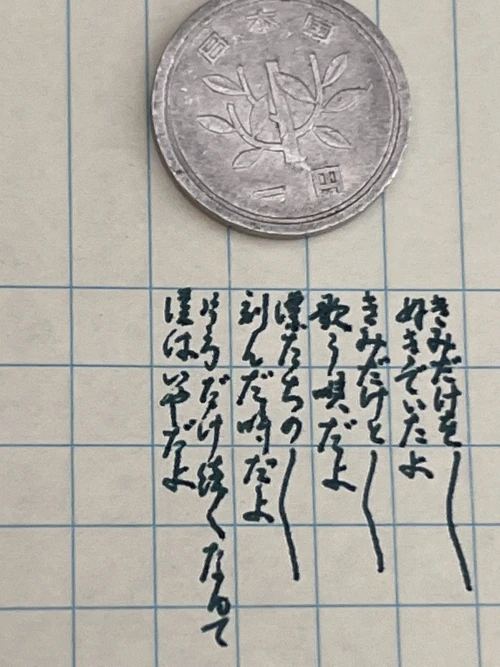 日本国
一円
きみだけを―
好きでいたよ
きみだけと―
歌う唄だよ
僕たちの―
刻んだ時だよ
片方だけ続くなんて
僕はいやだよ